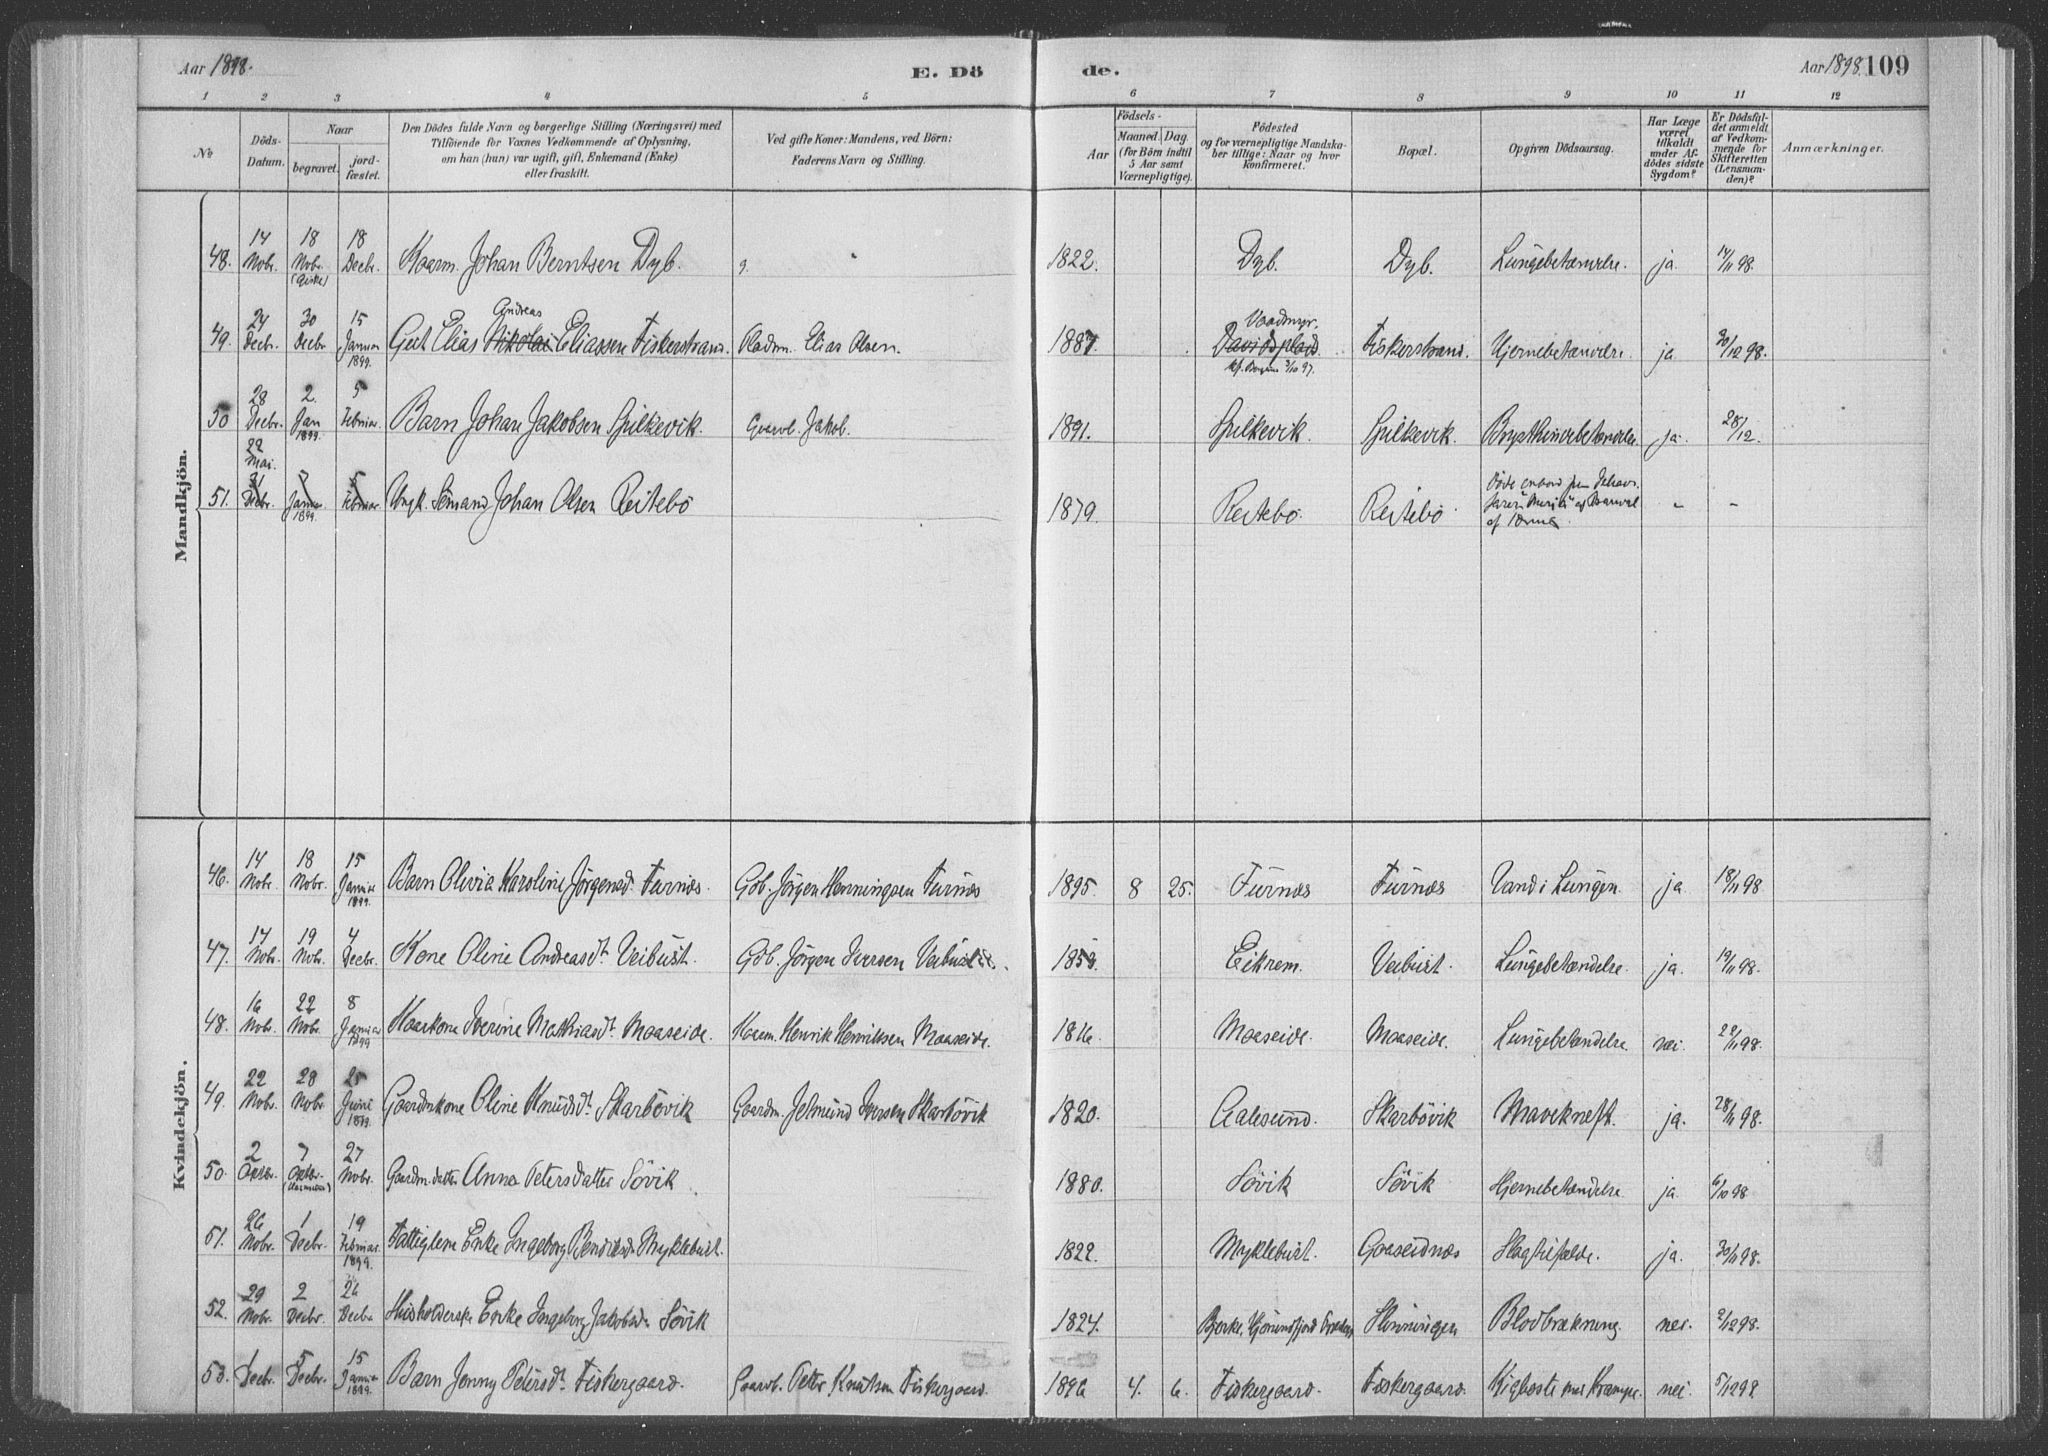 Aar 1898.
E. Dö
de.
Aar 1898. 109
1 2 3 4 5 6 7 8 9 10 11 12
No
Döds-
Datum.
Naar
begravet.
jord-
fæstet.
Den Dödes fulde Navn og borgerlige Stilling (Næringsvei) med
Tilföiende for Voxnes Vedkommende af Oplysning,
om han (hun) var ugift, gift, Enkemand (Enke)
eller fraskilt.
Ved gifte Koner: Mandens, ved Börn:
Faderens Navn og Stilling.
Födsels-
Aar
Maaned. Dag.
(for Börn indtil
5 Aar samt
Værnepligtige).
Födested
og for værnepligtige Mandska-
ber tillige: Naar og hvor
Konfirmeret.
Bopæl.
Opgiven Dödsaarsag.
Har Læge
været
tilkaldt
under Af-
dödes sidste
Sygdom?
Er Dödsfal-
det anmeldt
af Vedkom-
mende for
Skifteretten
(Lensman-
den)?
Anmærkninger.
Mandkjön.
48. 14 Nobr. 18 Nobr. (Giske) 18 Decbr. Kaarm. Johan Berntsen Dyb. g. 1822. Dyb. Dyb. Lungebetændelse. ja. 14/11 98.
49. 24 Decbr. 30 Decbr 15 Januar 1899. Gut Elias Nikolai Andreas Eliassen Fiskerstrand. Pladsm. Elias Olsen. 1887. Fiskerstrand. Hjernebetændelse. ja 30/12 98.
50 28 Decbr. 2. Jan 1899. 5 Februar Barn Johan Jakobsen Spilkevik. Gaardb. Jakob. 1891. Spilkevik. Spilkevik. Brysthindebetændelse ja. 28/12.
51. 22 Mai. 31 Decbr. Januar 1899. 5 Februar Ungk. Sömand Johan Olsen Reitebö 1879. Reitebö. Reitebö - -
Kvindekjön.
46. 14 Nobr. 18 Nobr. 15 Januar 1899. Barn Olivia Karoline Jörgensd. Furnæs. Gdb. Jörgen Henningsen Furnæs 1895. 8 25. Furnæs Furnæs Vand i Lungen. ja. 18/11 98.
47. 14 Nobr. 19 Nobr. 4 Decbr. Kone Oline Andreasdt. Veibust. Gdb. Jörgen Iversen Veibust. 1859. Eikrem. Veibust. Lungebetændelse. ja. 19/11 98.
48. 16 Nobr. 22 Nobr. 8 Januar 1899 Kaarkone Iverine Mathiasdt. Maaseide. Kaarm. Henrik Henriksen Maaseide. 1816. Maaseide. Maaseide. Lungebetændelse. nei. 22/11 98.
49. 22 Nobr. 28 Nobr. 25 Juni 1899. Gaardkone Oline Knudsdt. Skarbövik Gaardm. Jetmund Iversen Skarbövik 1820. Aalesund. Skarbövik Mavekræft. ja. 28/11 98.
50. 2 Oktbr. 7 Oktbr. 27 Nobr. Gaardm.datter Anna Petersdatter Sövik 1880. Sövik Sövik Hjernebetændelse. ja. 6/10 98
51. 26 Nobr. 1 Decbr. 19 Februar. 1899. Fattiglem Enke Ingeborg Bendiksdt. Myklebust. 1822. Myklebust. Gaaseidnæs Slagtilfælde. ja. 30/11 98.
52. 29 Nobr. 2 Decbr. 26 Decbr Husholderske Enke Ingeborg Jakobsdtr Sövik 1824. Bjerke, Hjörundfjord Slinningen Blodbrækning nei. 2/12 98.
53. 1 Decbr. 5 Decbr. 15 Januar 1899. Barn Jenny Petersdt. Fiskergaard. Gaardb. Petter Knutsen Fiskergaard. 1896 4. 6. Fiskergaard. Fiskergaard. Kighoste med Krampe. nei. 5/12 98